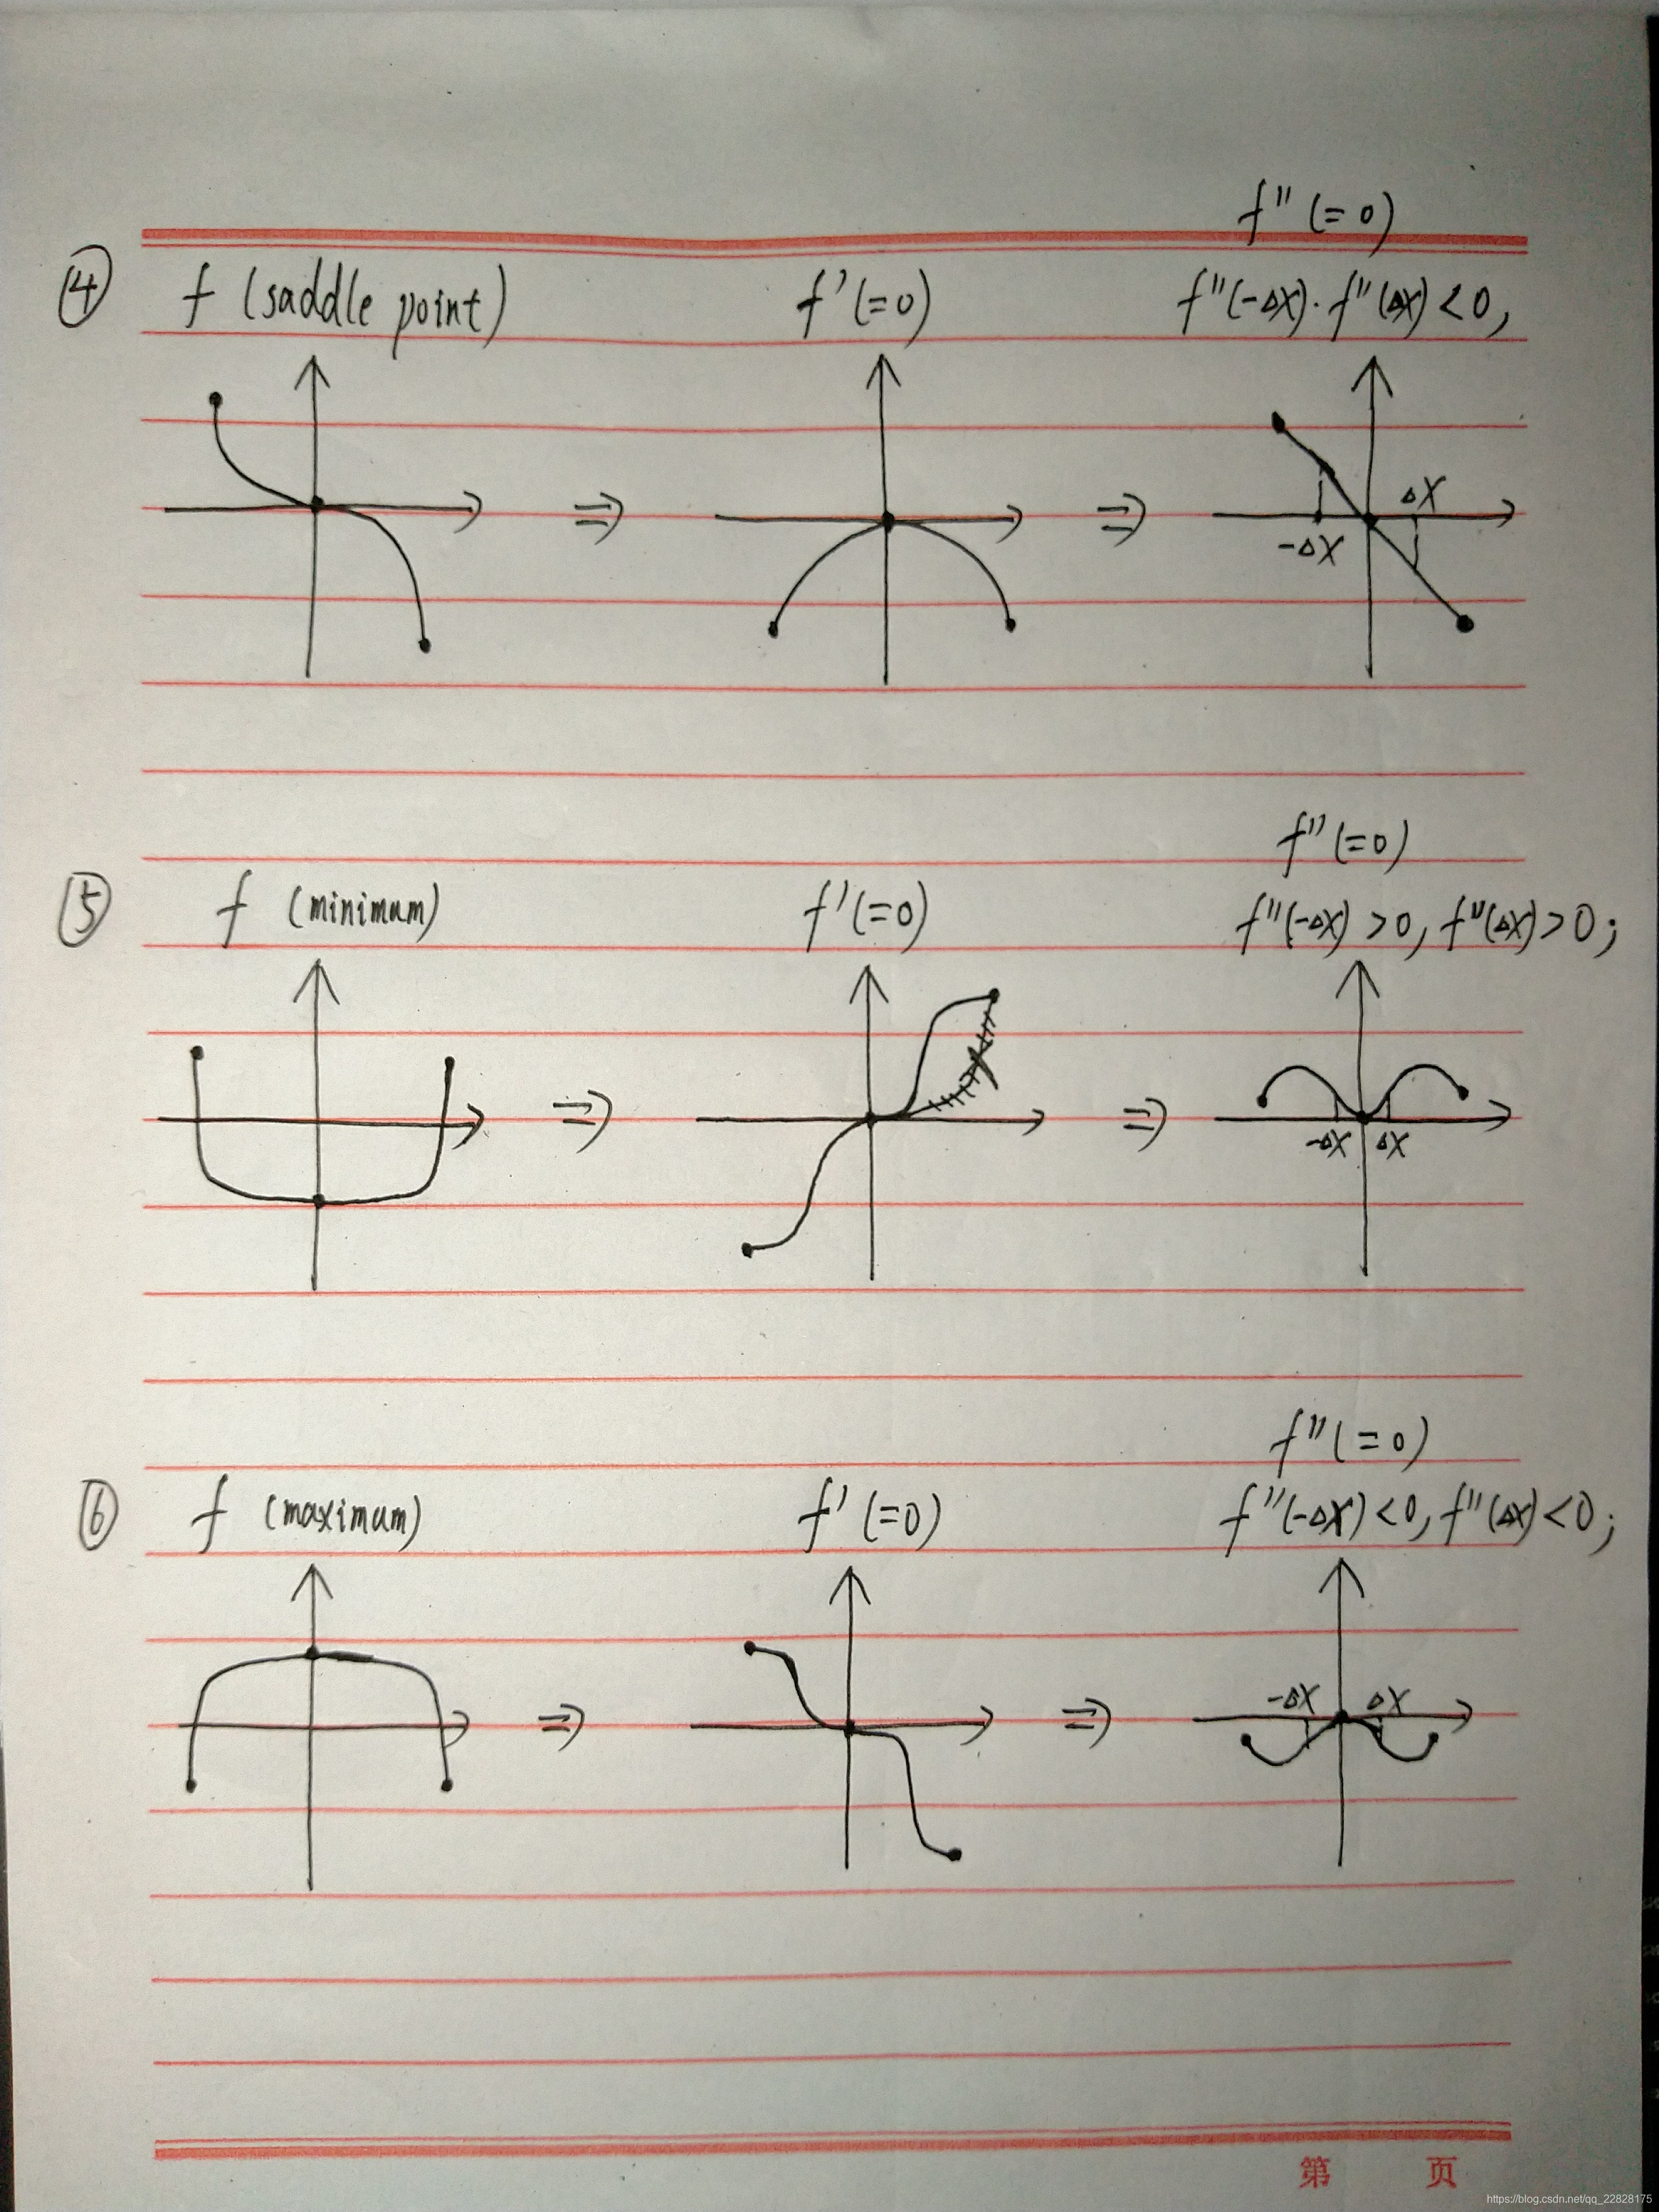 f″(=0)
④ f (saddle point) f′(=0) f″(-Δx)·f″(Δx)<0,
Δx
-Δx
f″(=0)
⑤ f (minimum) f′(=0) f″(-Δx)>0, f″(Δx)>0;
-Δx Δx
f″(=0)
⑥ f (maximum) f′(=0) f″(-Δx)<0, f″(Δx)<0;
-Δx Δx
⇒ ⇒
第 页
https://blog.csdn.net/qq_22828175